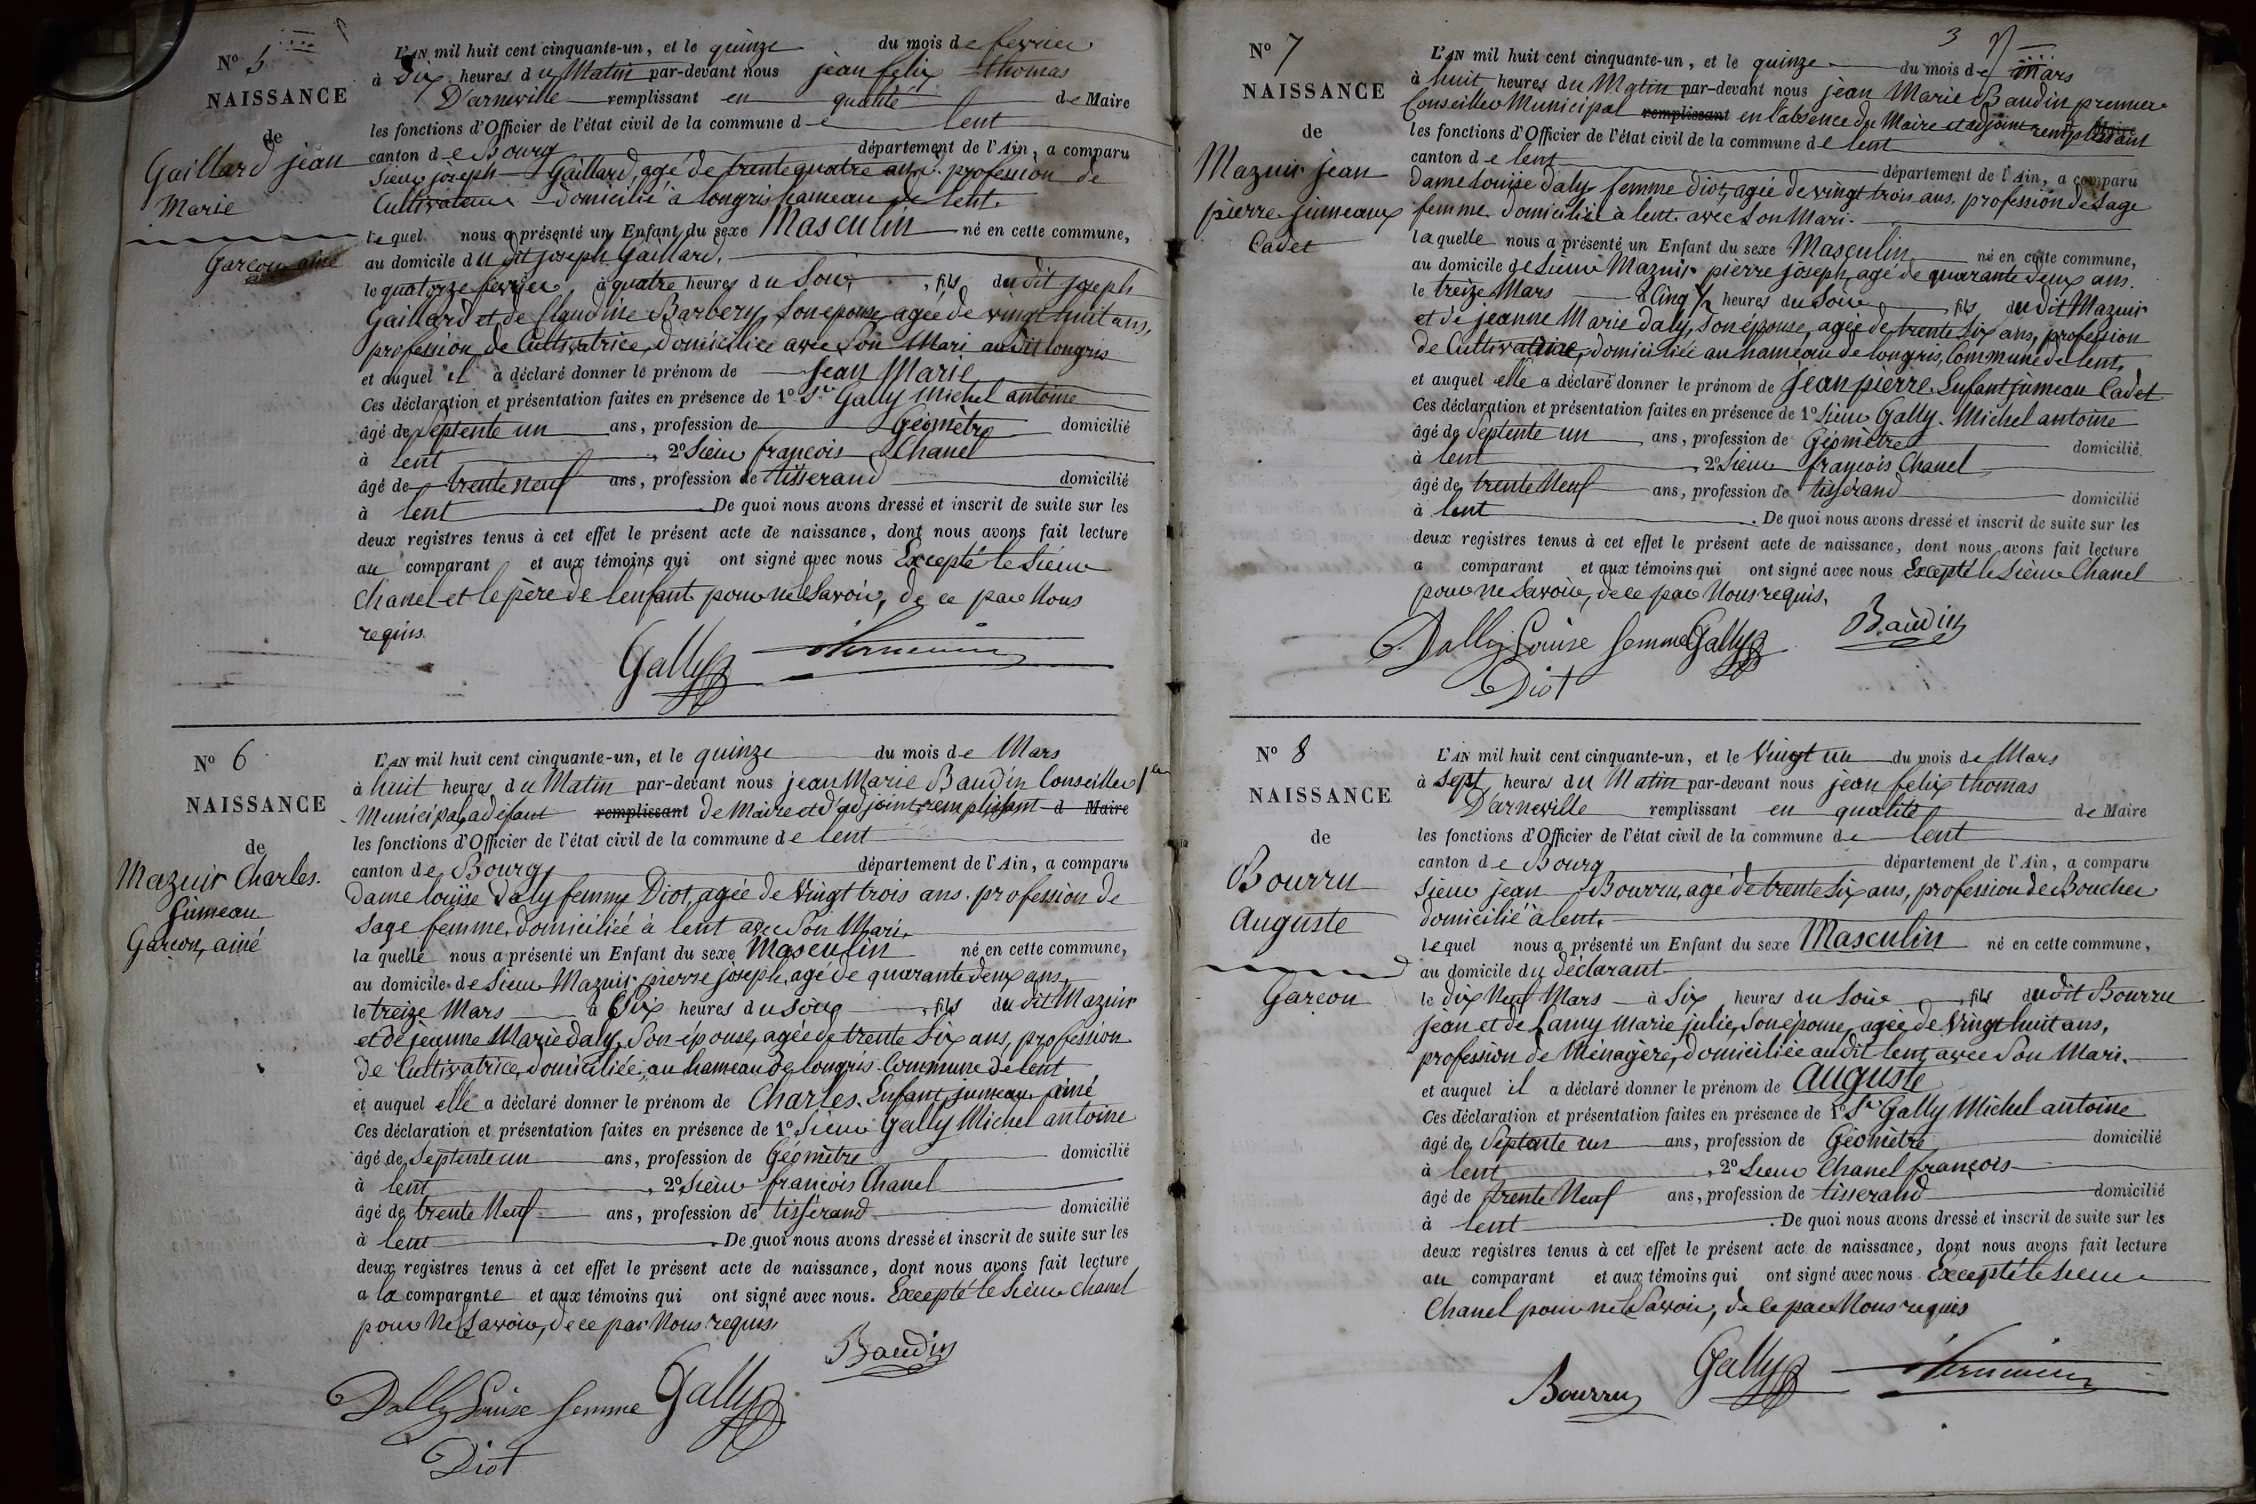 N° 5
NAISSANCE
de
Gaillard jean
Marie
Garçon ainé
L'AN mil huit cent cinquante-un, et le quinze du mois de fevrier
à Dix heures du Matin par-devant nous jean felix thomas
D'arneville remplissant en qualité de Maire
les fonctions d'Officier de l'état civil de la commune de lent
canton de Bourg département de l'Ain, a comparu
Sieur joseph Gaillard, agé de trente quatre ans profession de
Cultivateur domicilié à longris hameau de lent.
lequel nous a présenté un Enfant du sexe Masculin né en cette commune,
au domicile du dit joseph Gaillard.
le quatorze fevrier, à quatre heures du Soir, fils du dit joseph
Gaillard et de Claudine Barbery, Son epouse agée de vingt huit ans,
profession de Cultivatrice, domiciliée avec Son Mari au dit longris
et auquel il a déclaré donner le prénom de Jean Marie
Ces déclaration et présentation faites en présence de 1° Sr Gally Michel antoine
âgé de Septente un ans, profession de Géomètre domicilié
à lent, 2° Sieur françois Chanel
âgé de trente neuf ans, profession de tisserand domicilié
à lent. De quoi nous avons dressé et inscrit de suite sur les
deux registres tenus à cet effet le présent acte de naissance, dont nous avons fait lecture
au comparant et aux témoins qui ont signé avec nous Excepté le Sieur
Chanel et le père de lenfant pour ne Savoir, de ce par Nous
requis.
Gally
N° 6
NAISSANCE
de
Mazuir Charles.
jumeau
Garçon, ainé
L'AN mil huit cent cinquante-un, et le quinze du mois de Mars
à huit heures du Matin par-devant nous jean Marie Baudin Conseiller 1er
Municipal, a défaut remplissant de Maire et d'adjoint remplissant d Maire
les fonctions d'Officier de l'état civil de la commune de lent
canton de Bourg département de l'Ain, a comparu
Dame louise Daly femme Diot, agée de Vingt trois ans. profession de
Sage femme, domiciliée à lent avec Son Mari.
laquelle nous a présenté un Enfant du sexe Masculin né en cette commune,
au domicile de Sieur Mazuir pierre joseph, age de quarante deux ans
le treize Mars à Six heures du Soir, fils du dit Mazuir
et de jeanne Marie Daly, Son épouse, agée de trente Six ans, profession
de Cultivatrice, domiciliée, au hameau de longris Commune de lent
et auquel elle a déclaré donner le prénom de Charles. Enfant jumeau ainé
Ces déclaration et présentation faites en présence de 1° Sieur Gally Michel antoine
âgé de Septente un ans, profession de Géomètre domicilié
à lent, 2° Sieur françois Chanel
âgé de trente Neuf ans, profession de tisserand domicilié
à lent. De quoi nous avons dressé et inscrit de suite sur les
deux registres tenus à cet effet le présent acte de naissance, dont nous avons fait lecture
a la comparante et aux témoins qui ont signé avec nous. Excepté le Sieur Chanel
pour Ne Savoir, de ce par Nous requis.
Baudin
Dally Louise femme Gally
Diot
3
N° 7
NAISSANCE
de
Mazuir jean
pierre jumeaux
Cadet
L'AN mil huit cent cinquante-un, et le quinze du mois de Mars
à huit heures du Matin par-devant nous jean Marie Baudin premier
Conseiller Municipal remplissant en l'absence du Maire et adjoint remplissant Maire
les fonctions d'Officier de l'état civil de la commune de lent
canton de lent département de l'Ain, a comparu
Dame Louise daly femme diot, agée de vingt trois ans. profession de Sage
femme. domiciliée à lent avec Son Mari.
laquelle nous a présenté un Enfant du sexe Masculin né en cette commune,
au domicile de Sieur Mazuir pierre joseph, agé de quarante deux ans.
le treize Mars à Cinq ½ heures du Soir fils du dit Mazuir
et de jeanne Marie daly, Son épouse, agée de trente Six ans, profession
de Cultivatrice, domiciliée au hameau de longris, Commune de lent,
et auquel elle a déclaré donner le prénom de Jean pierre. Enfant jumeau Cadet
Ces déclaration et présentation faites en présence de 1° Sieur Gally. Michel antoine
âgé de Septente un ans, profession de Géomètre domicilié
à lent, 2° Sieur françois Chanel
âgé de trente Neuf ans, profession de tisserand domicilié
à lent. De quoi nous avons dressé et inscrit de suite sur les
deux registres tenus à cet effet le présent acte de naissance, dont nous avons fait lecture
a comparant et aux témoins qui ont signé avec nous Excepté le Sieur Chanel
pour Ne Savoir, de ce par Nous requis.
Baudin
Dally Louise femme Gally
Diot
N° 8
NAISSANCE
de
Bourru
Auguste
Garçon
L'AN mil huit cent cinquante-un, et le Vingt un du mois de Mars
à Sept heures du Matin par-devant nous jean felix thomas
D'arneville remplissant en qualité de Maire
les fonctions d'Officier de l'état civil de la commune de lent
canton de Bourg département de l'Ain, a comparu
Sieur jean Bourru, agé de trente Six ans, profession de Boucher
domicilié à lent.
lequel nous a présenté un Enfant du sexe Masculin né en cette commune,
au domicile du déclarant
le dix Neuf Mars à Six heures du Soir, fils du dit Bourru
jean et de Lamy Marie julie, Son épouse, agée de Vingt huit ans,
profession de Ménagère, domiciliée au dit lent avec Son Mari.
et auquel il a déclaré donner le prénom de Auguste
Ces déclaration et présentation faites en présence de 1° Sr Gally Michel antoine
âgé de Septente un ans, profession de Géomètre domicilié
à lent, 2° Sieur Chanel françois
âgé de trente Neuf ans, profession de tisserand domicilié
à lent. De quoi nous avons dressé et inscrit de suite sur les
deux registres tenus à cet effet le présent acte de naissance, dont nous avons fait lecture
au comparant et aux témoins qui ont signé avec nous Excepté le Sieur
Chanel pour ne Savoir, de ce par Nous requis
Bourru Gally